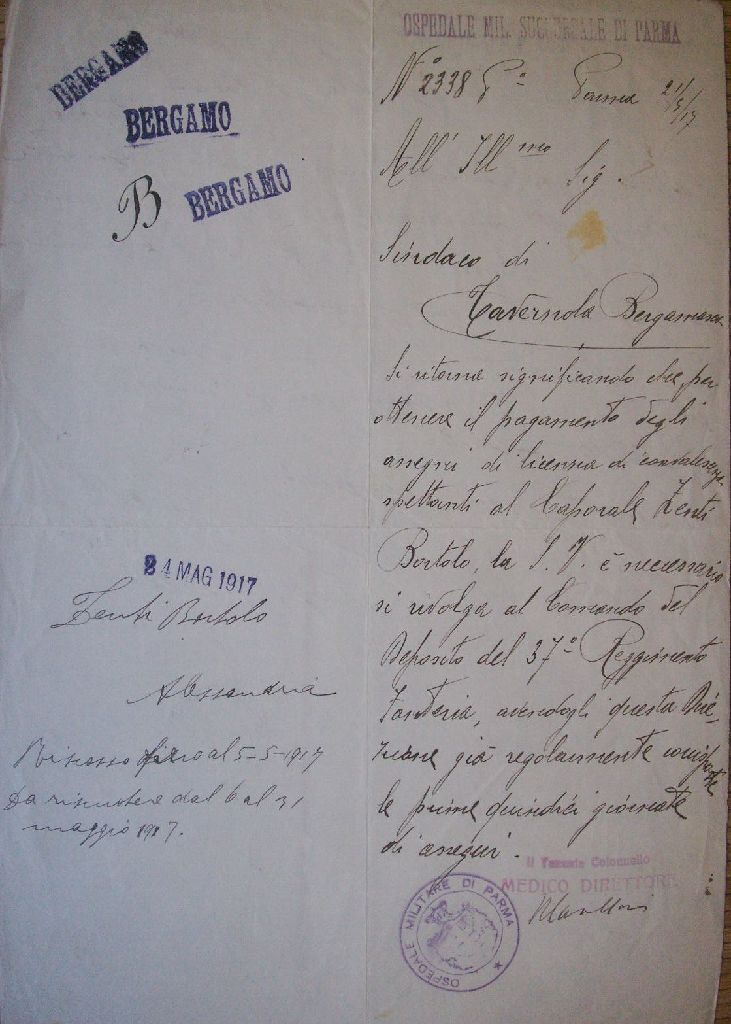 BERGAMO
BERGAMO
B BERGAMO
24 MAG 1917
Zenti Bortolo
Alessandria
Riscosso fino al 5-5-1917
Da riscuotere dal 6 al 31
maggio 1917.
OSPEDALE MIL. SUCCURSALE DI PARMA
N° 2338 Parma 21/5/17
All' Ill mo Sig.
Sindaco di
Tavernola Bergamasca
Si ritorna significando che, per
ottenere il pagamento degli
assegni di licenza di convalescenza
spettanti al Caporale Zenti
Bortolo, la S. V. è necessario
si rivolga al Comando del
Deposito del 37° Reggimento
Fanteria, avendogli questa Dire-
zione già regolarmente corrisposte
le prime quindici giornate
di assegni.
Il Tenente Colonnello
MEDICO DIRETTORE
OSPEDALE MILITARE DI PARMA